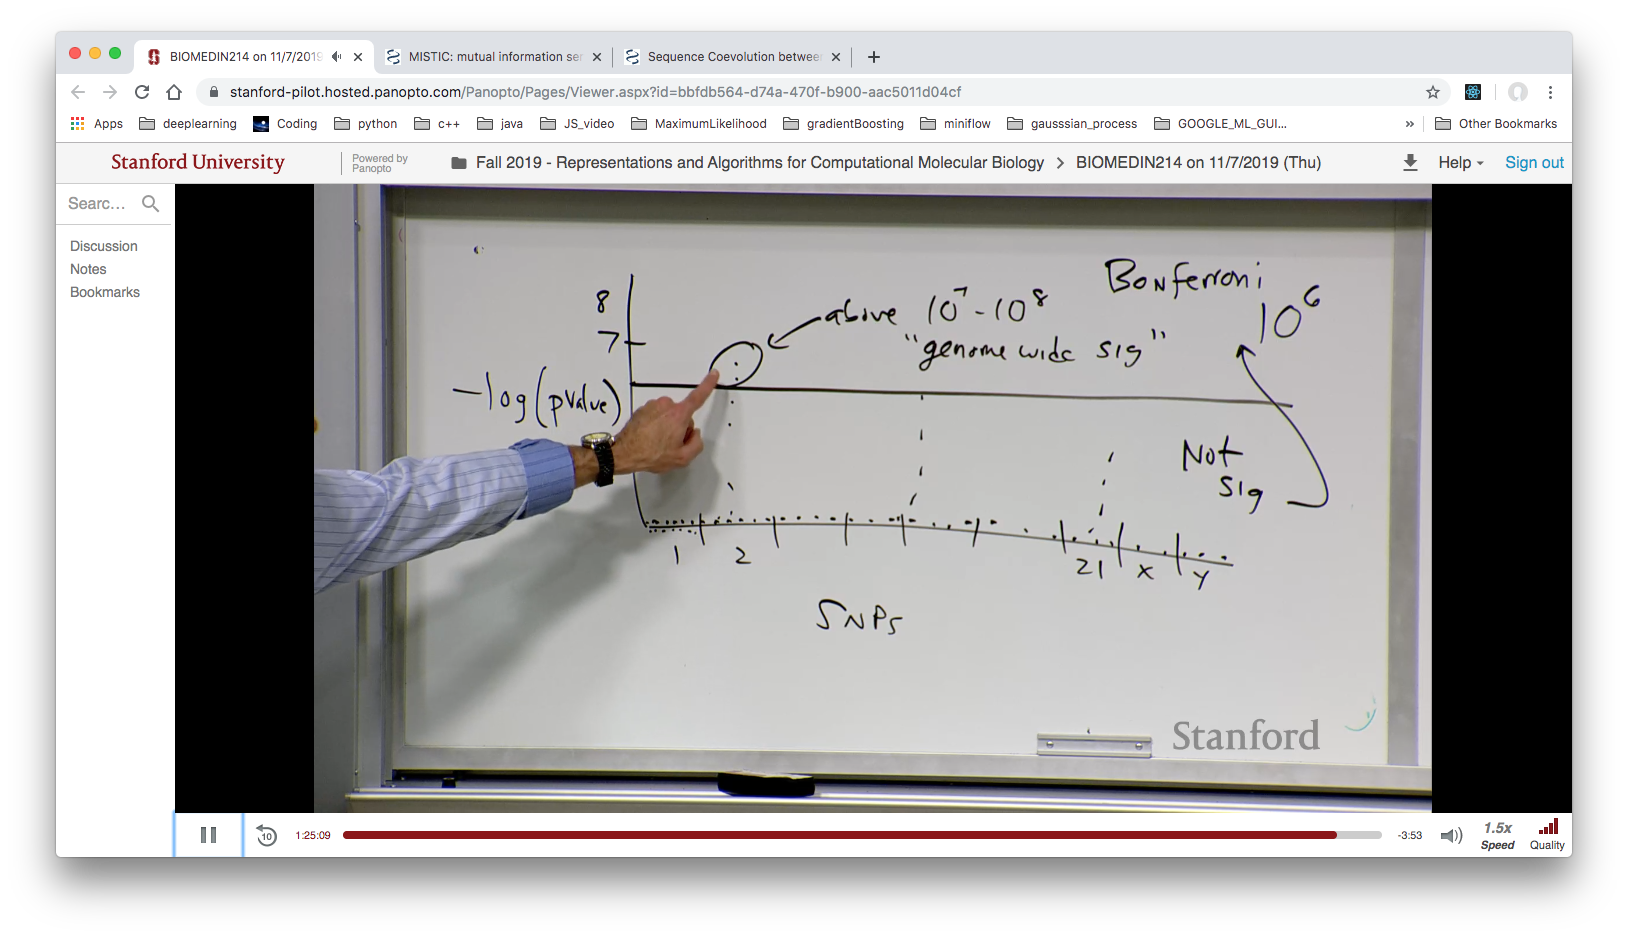 BIOMEDIN214 on 11/7/2019
MISTIC: mutual information ser
Sequence Coevolution between
stanford-pilot.hosted.panopto.com/Panopto/Pages/Viewer.aspx?id=bbfdb564-d74a-470f-b900-aac5011d04cf
Apps deeplearning Coding python c++ java JS_video MaximumLikelihood gradientBoosting miniflow gausssian_process GOOGLE_ML_GUI... » Other Bookmarks
Stanford University
Powered by
Panopto
Fall 2019 - Representations and Algorithms for Computational Molecular Biology > BIOMEDIN214 on 11/7/2019 (Thu)
Help
Sign out
Searc...
Discussion
Notes
Bookmarks
Bonferroni
10⁶
8
7
above 10⁷ - 10⁸
"genome wide sig"
-log(pvalue)
Not
Sig
1 2 21 X Y
SNPs
Stanford
10
1:25:09
-3:53
1.5x
Speed
Quality